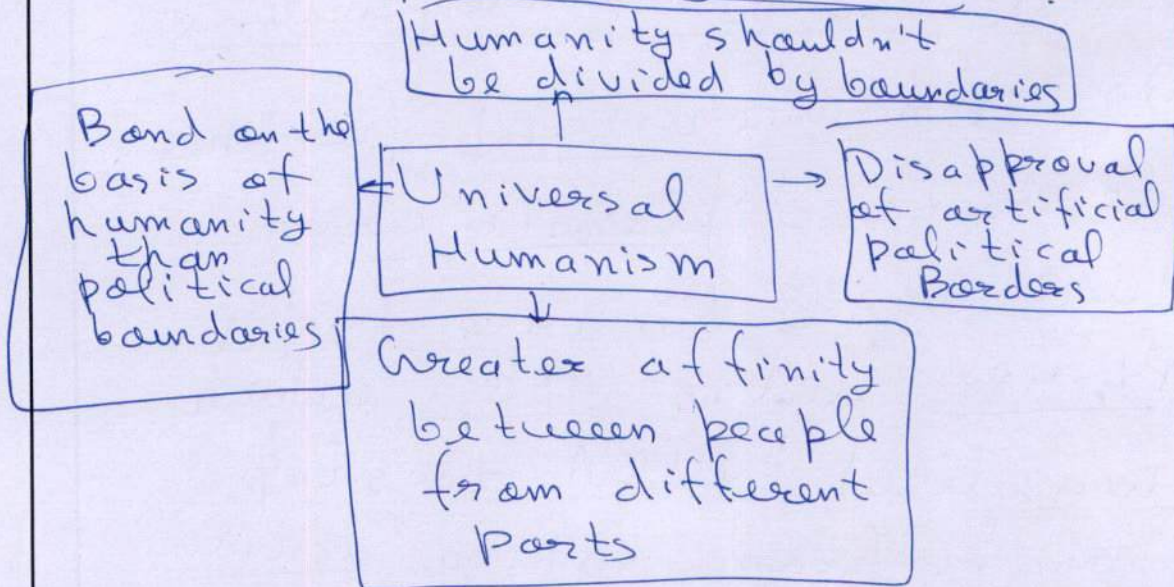 Humanity shouldn't
be divided by boundaries
Bond on the
basis of
humanity
than
political
boundaries
Universal
Humanism
Disapproval
of artificial
political
Borders
Greater affinity
between people
from different
Parts